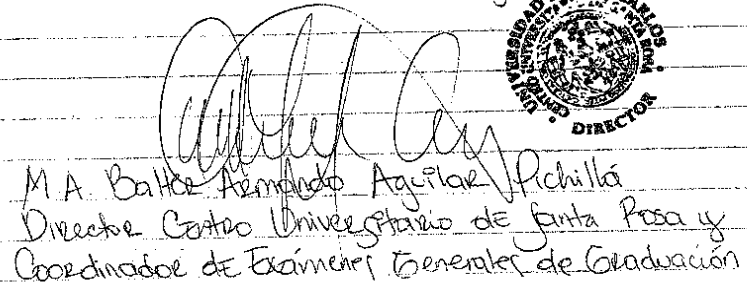 UNIVERSIDAD DE SAN CARLOS
CENTRO UNIVERSITARIO SANTA ROSA
DIRECTOR
M.A. Balter Armando Aguilar Pichillá
Director Centro Universitario de Santa Rosa y
Coordinador de Exámenes Generales de Graduación